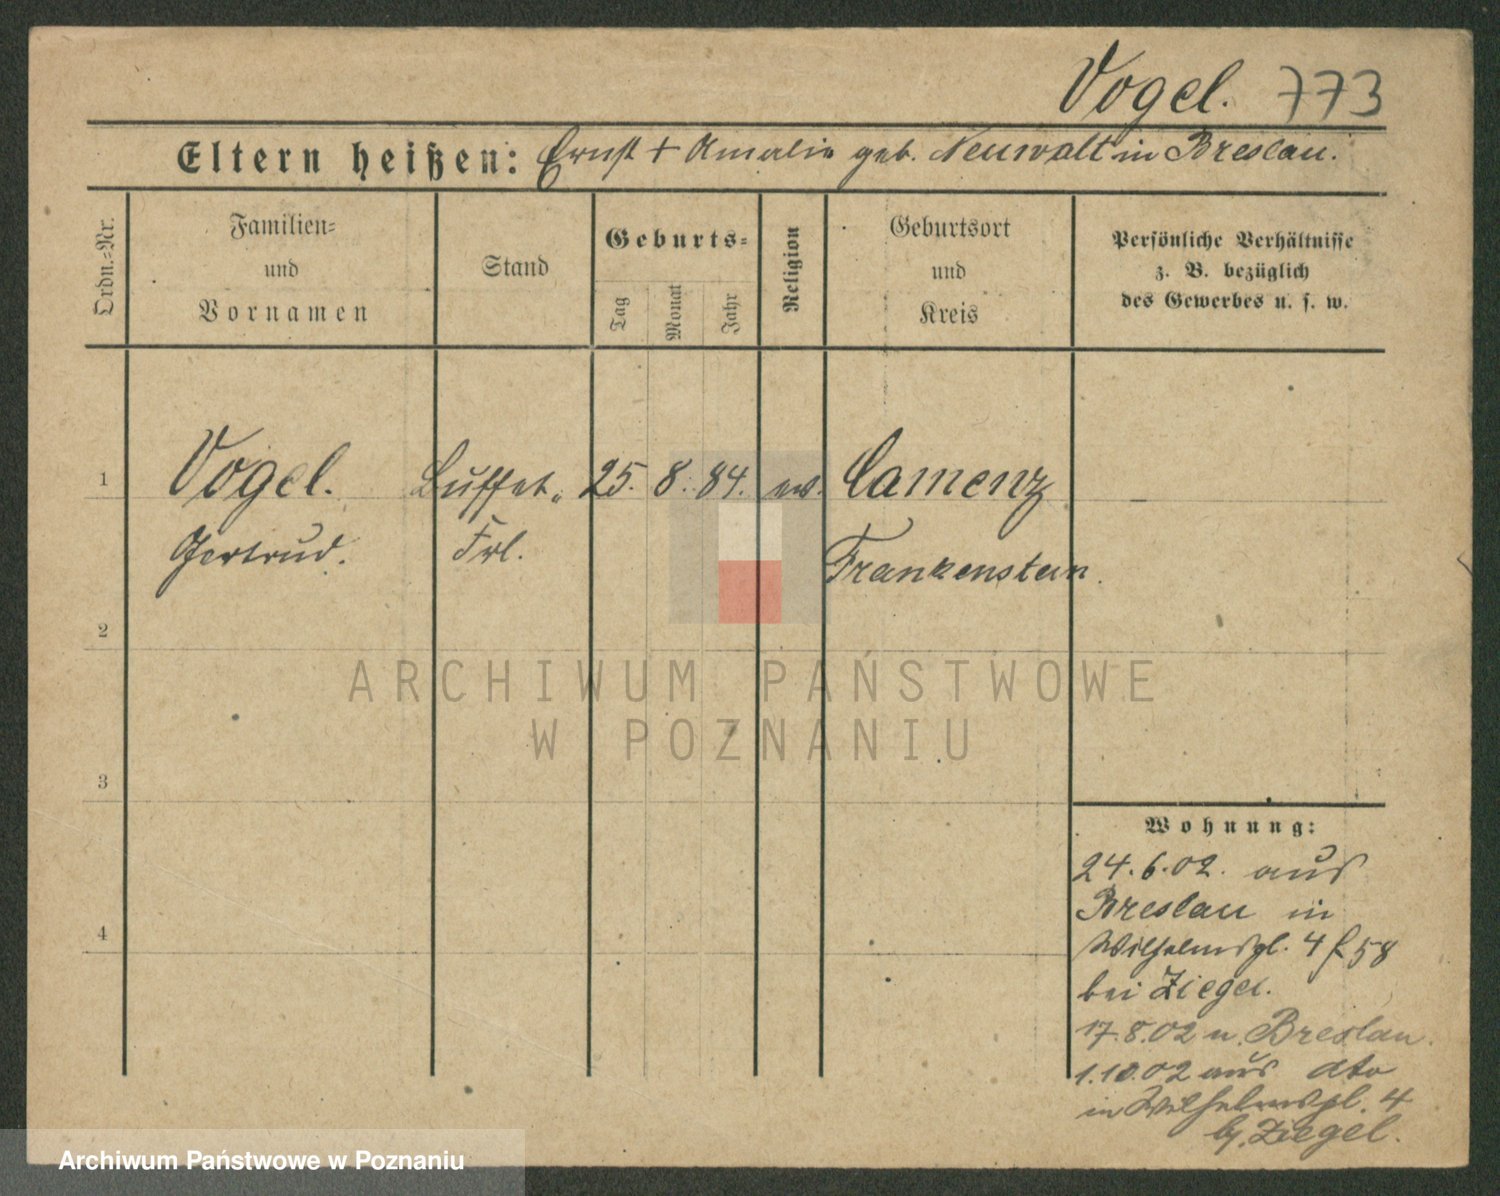 Vogel. 773
Eltern heißen: Ernst + Amalie geb. Neuwalt in Breslau.
Ordn.-Nr.
Familien-
und
Vornamen
Stand
Geburts-
Tag
Monat
Jahr
Religion
Geburtsort
und
Kreis
Persönliche Verhältnisse
z. B. bezüglich
des Gewerbes u. s. w.
1 Vogel. Buffet- 25. 8. 84. ev. Camenz
Gertrud. Frl. Frankenstein.
2
3
4
Wohnung:
24.6.02. aus
Breslau in
Wilhelmspl. 4 58
bei Ziegel.
17.8.02 n. Breslau.
1.10.02 aus dto
in Wilhelmspl. 4
b/ Ziegel.
ARCHIWUM PAŃSTWOWE
W POZNANIU
Archiwum Państwowe w Poznaniu